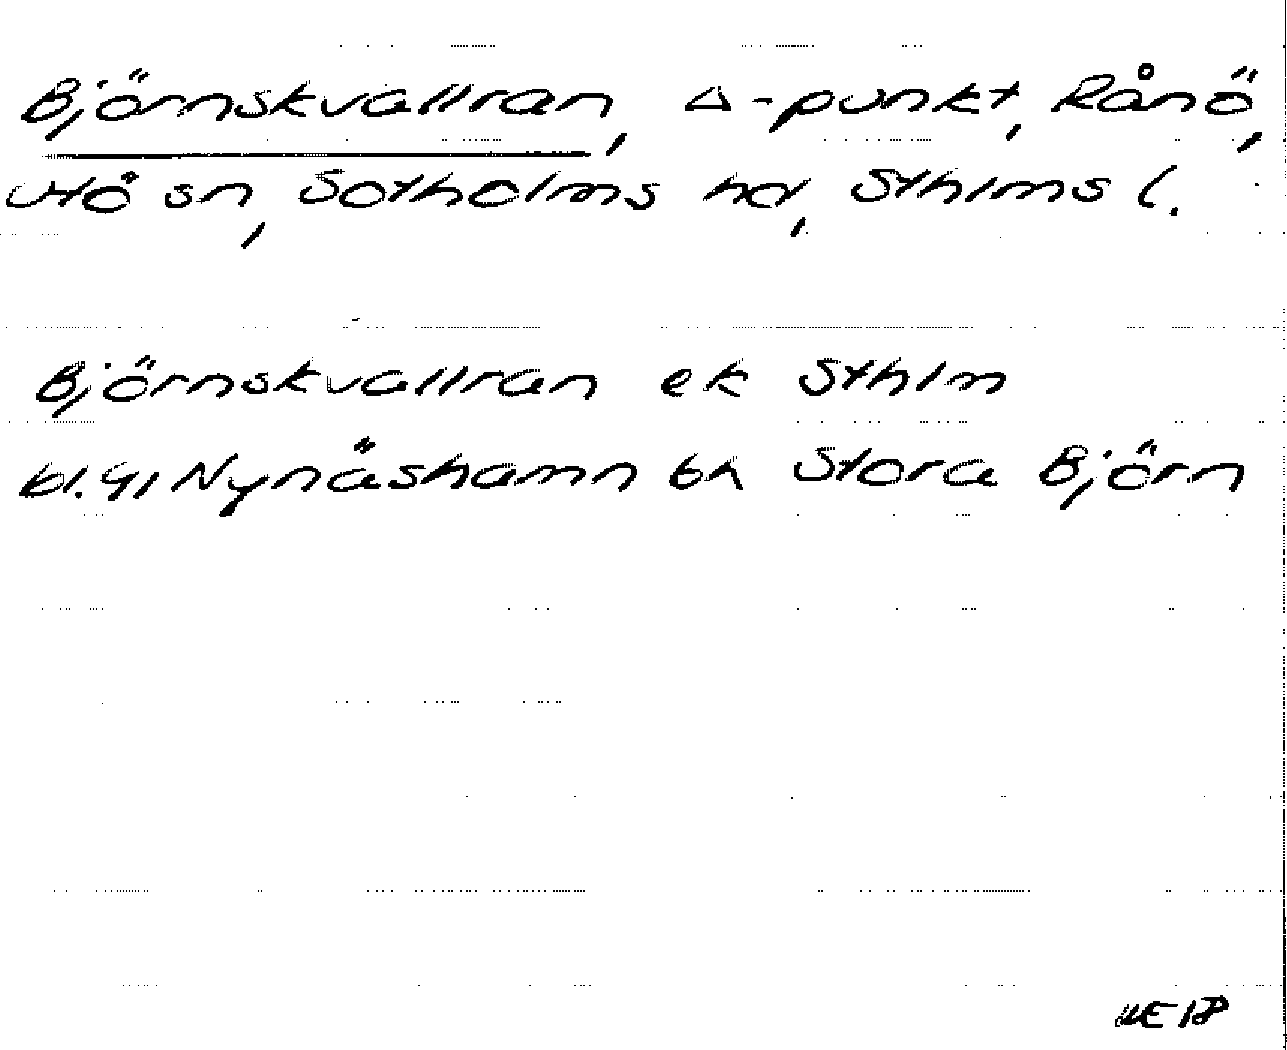 Björnskvallran, Δ-punkt, Rånö,
Utö sn, Sotholms hd, Sthlms l.
Björnskvallran ek Sthlm
bl. 91 Nynäshamn bh Stora Björn